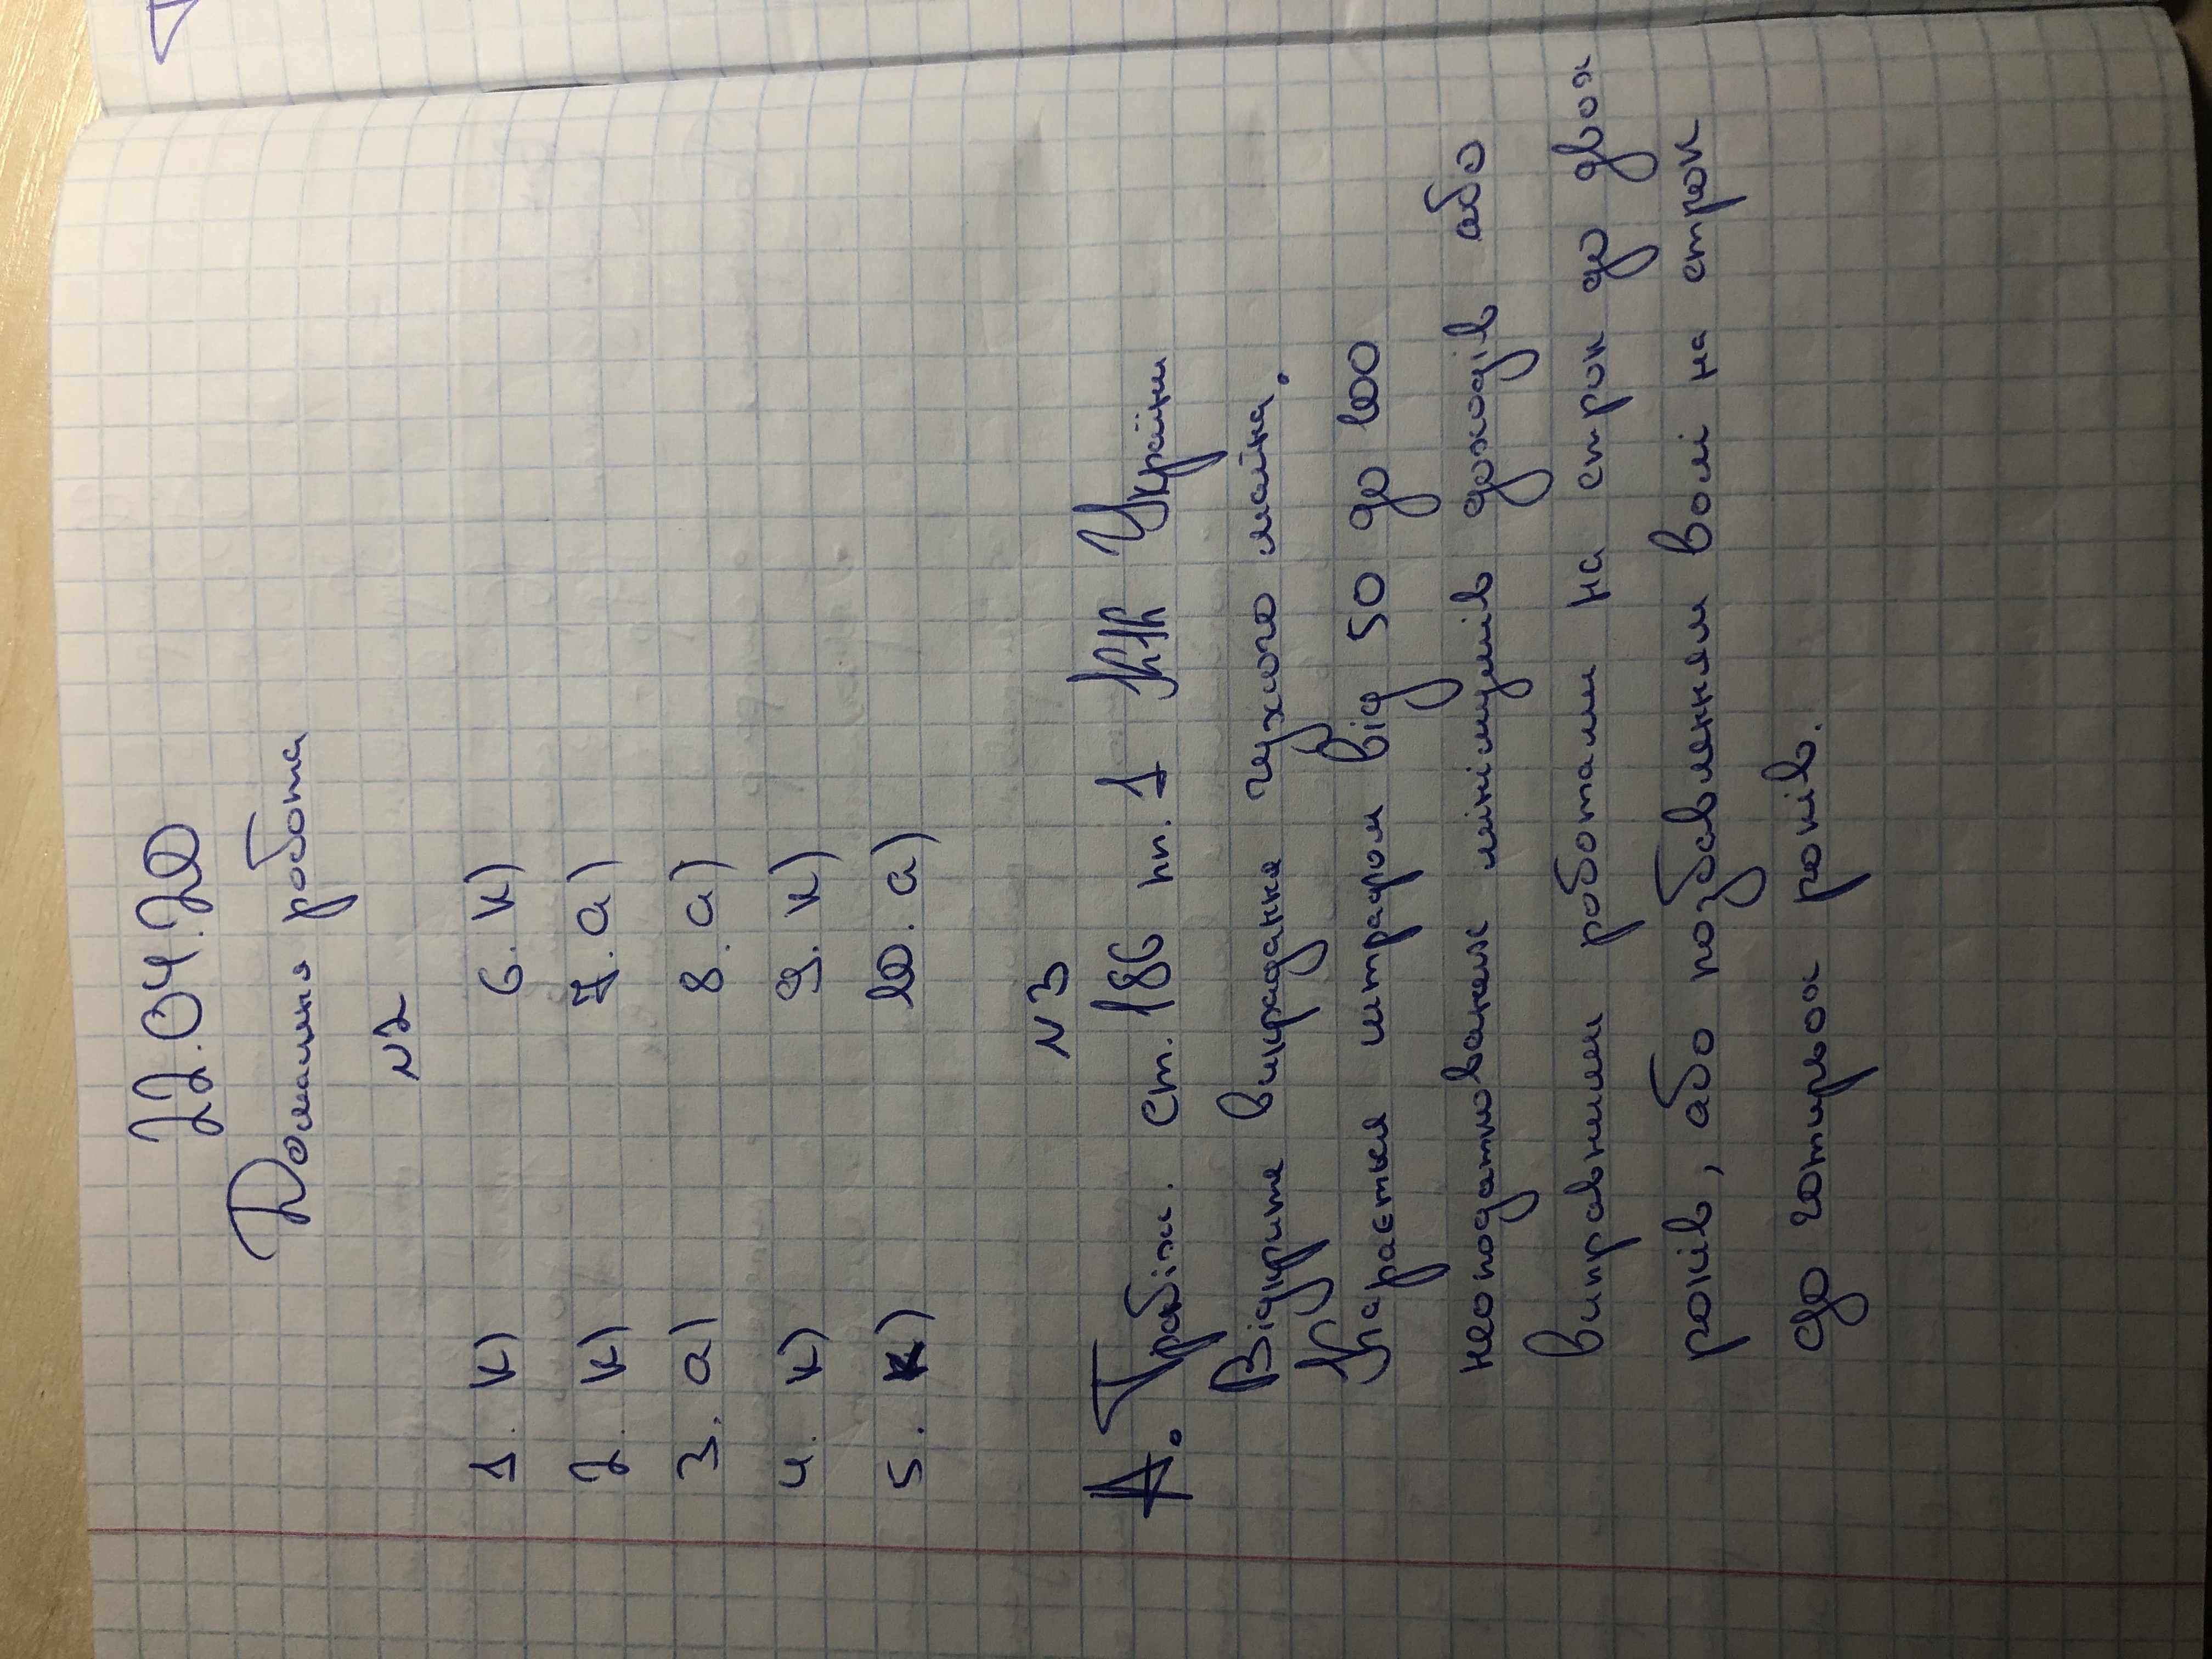 22.04.20
Домашня робота
№2
1. к) 6. к)
2. к) 7. а)
3. а) 8. а)
4. к) 9. к)
5. к) 10. а)
№3
А. Грабіж. ст. 186 чп. 1 ККК України
Відкрите викрадання чужого майна.
Карається штрафом від 50 до 100
неоподатковання мінімумів доходів або
виправними роботами на строк до двох
років, або позбавленням волі на строк
до чотирьох років.